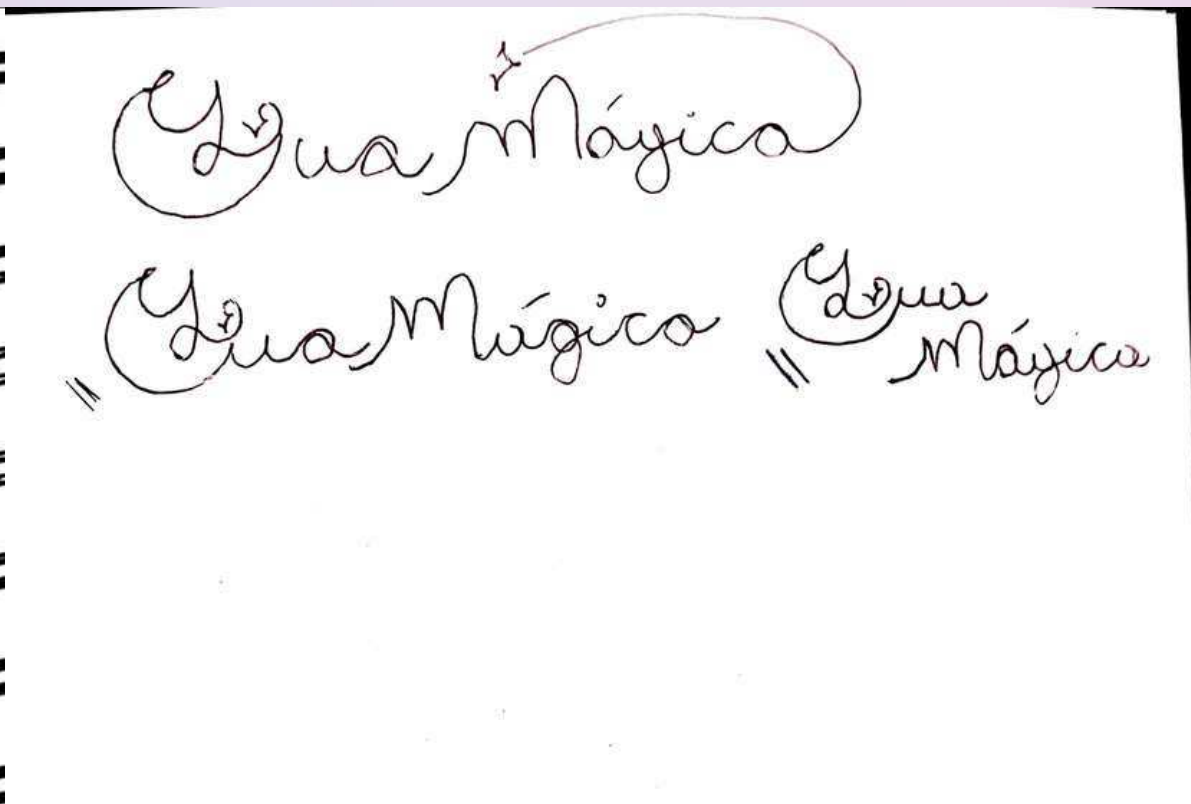 Lua Mágica
Lua Mágica
Lua
Mágica